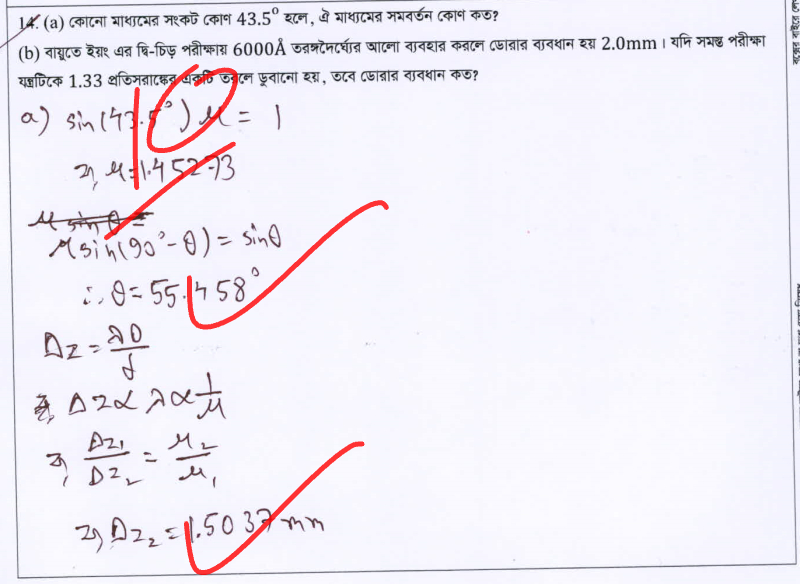 14. (a) কোনো মাধ্যমের সংকট কোণ 43.5° হলে, ঐ মাধ্যমের সমবর্তন কোণ কত?
(b) বায়ুতে ইয়ং এর দ্বি-চিড় পরীক্ষায় 6000Å তরঙ্গদৈর্ঘ্যের আলো ব্যবহার করলে ডোরার ব্যবধান হয় 2.0mm। যদি সমস্ত পরীক্ষা
যন্ত্রটিকে 1.33 প্রতিসরাঙ্কের একটি তরলে ডুবানো হয়, তবে ডোরার ব্যবধান কত?
a) sin(43.5°) μ = 1
বা, μ = 1.45273
μ sin θ =
μ sin(90° - θ) = sinθ
∴ θ = 55.458°
Δz = λD/d
বা, Δz ∝ λ ∝ 1/μ
বা, Δz₁/Δz₂ = μ₂/μ₁
বা, Δz₂ = 1.5037 mm